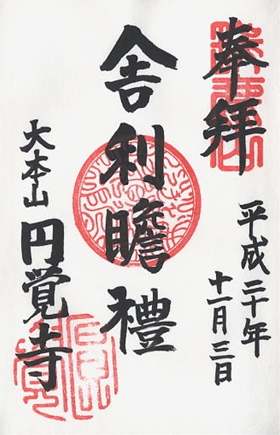 奉拝
平成二十年
十一月三日
舎利瞻禮
大本山
円覚寺